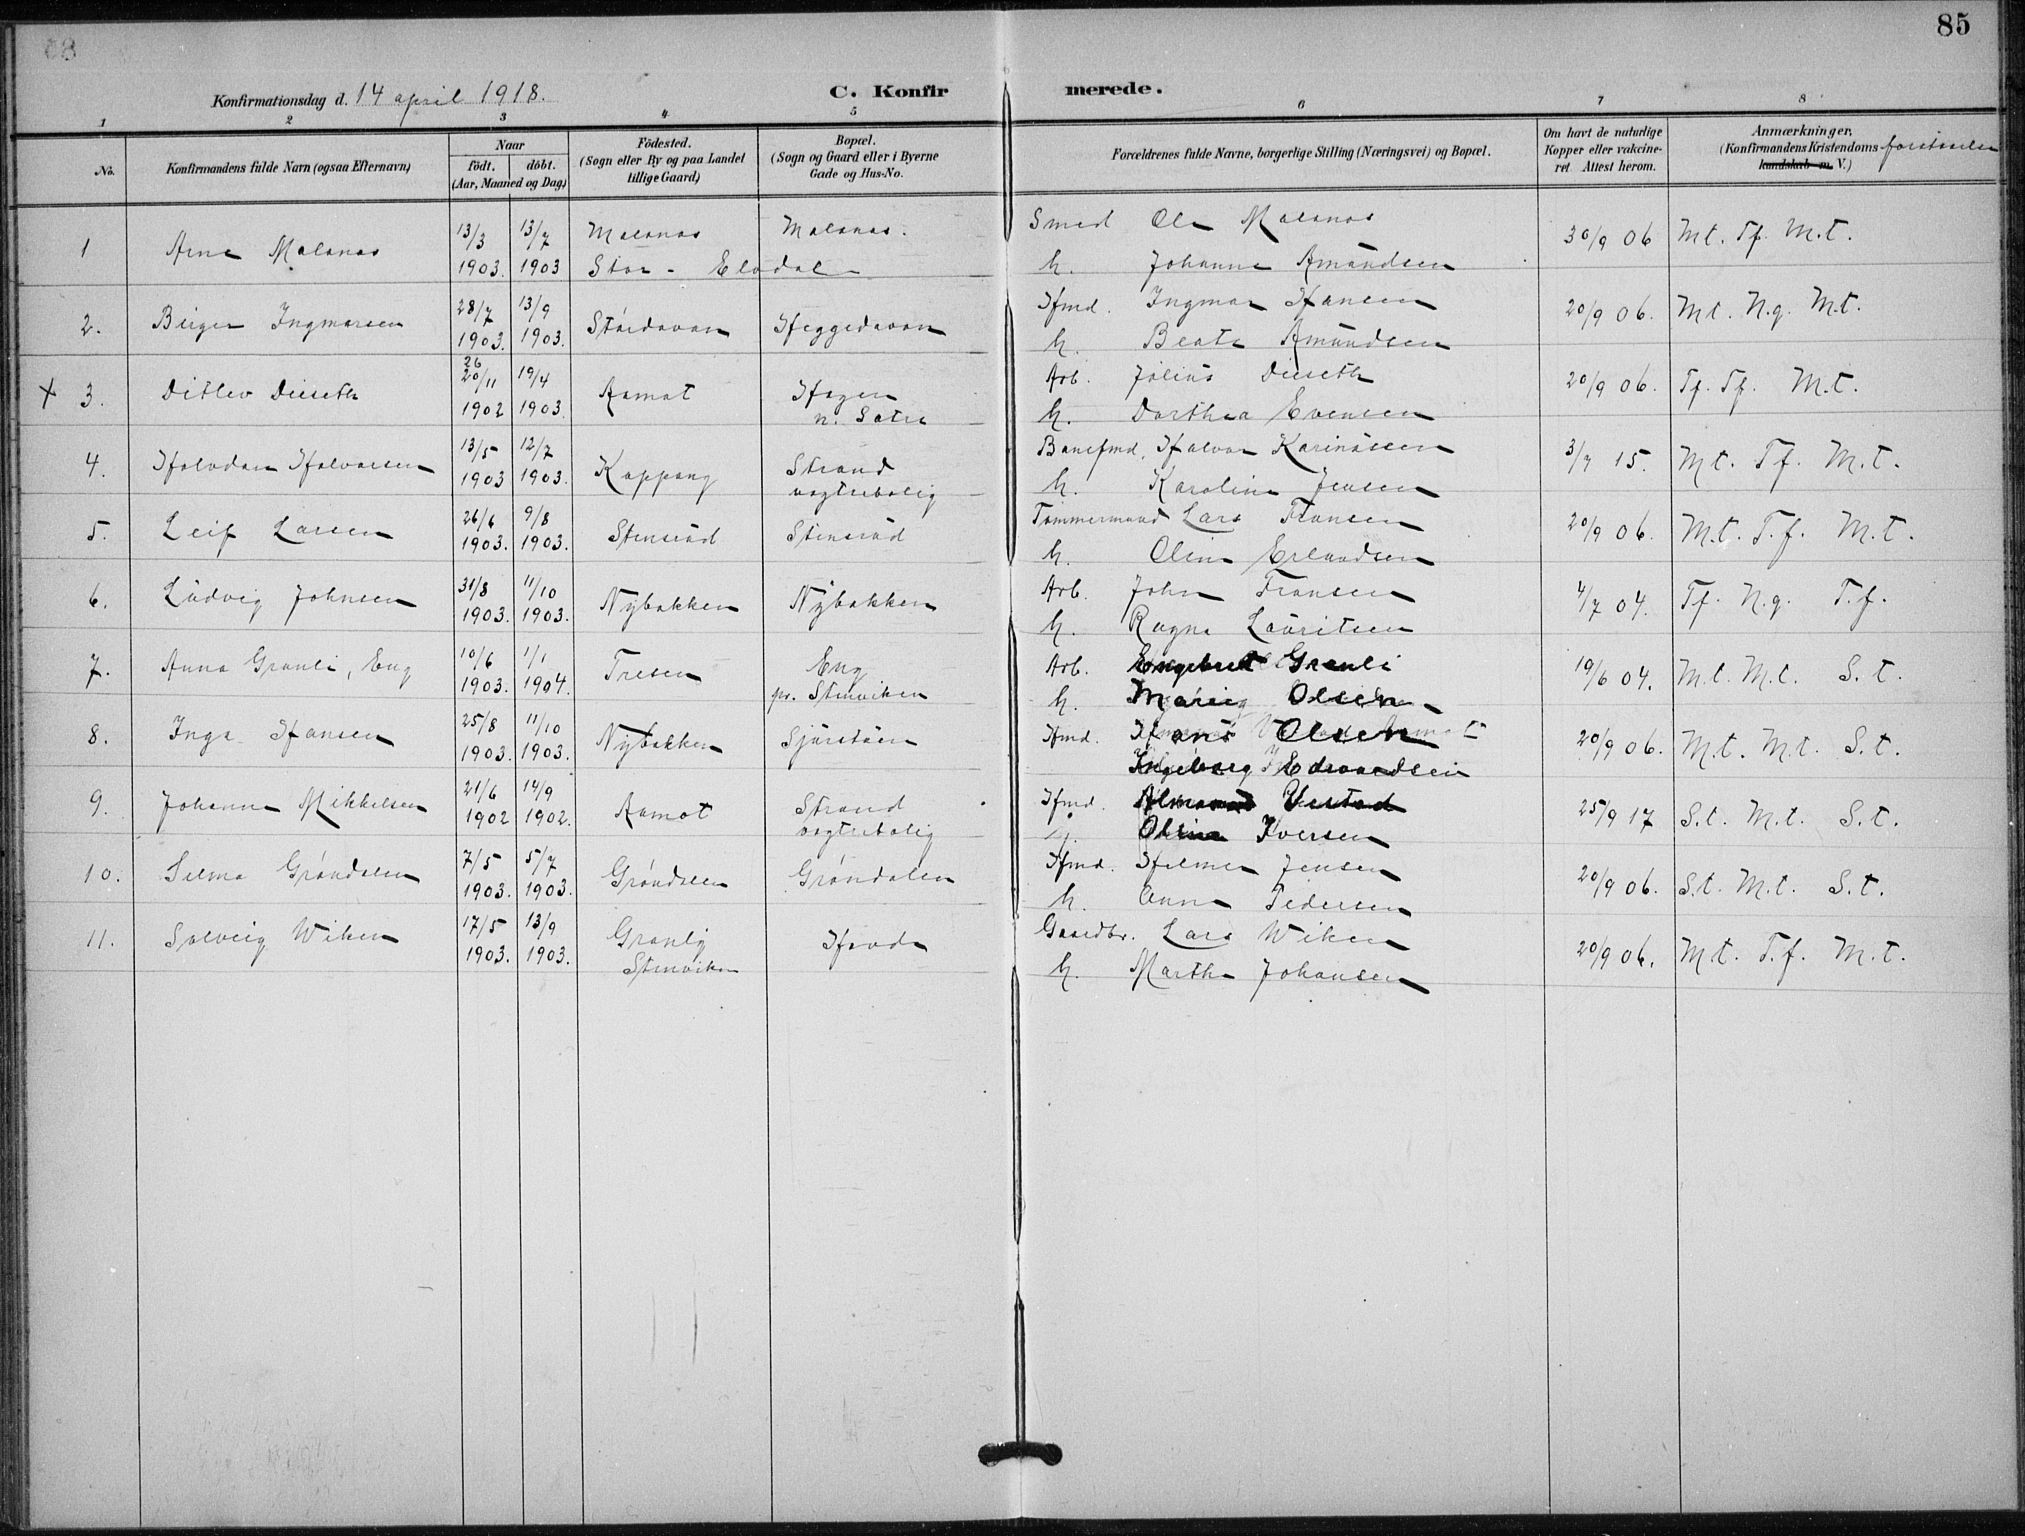 85
Konfirmationsdag d. 14 april 1918.
C. Konfirmerede.
1 2 3 4 5 6 7 8
No.
Konfirmandens fulde Navn (ogsaa Efternavn)
Naar
födt. döbt.
(Aar, Maaned og Dag)
Födested.
(Sogn eller By og paa Landet
tillige Gaard)
Bopæl.
(Sogn og Gaard eller i Byerne
Gade og Hus-No.
Forældrenes fulde Navne, borgerlige Stilling (Næringsvei) og Bopæl.
Om havt de naturlige
Kopper eller vakcine-
ret Attest herom.
Anmærkninger,
(Konfirmandens Kristendoms forstaaelse
kundskab m. V.)
1 Arne Malanas 13/3 13/7 Malanas Malanas. Smed Ole Malanas 30/9 06 Mt. Tf. M.t.
1903. 1903 Stor-Elvdal h. Johanne Amundsen
2. Birger Ingmarsen 28/7 13/9 Heggedavan Hmd. Ingmar Hansen 20/9 06. Mt. N.g. Mt.
1903. 1903. h. Beate Amundsen
26
X 3. Ditlev Dieseth 20/11 19/4 Aamot Hagen Arb. Julius Dieseth 20/9 06. Tf. Tf. M.t.
1902 1903. n. Sætre h. Dorthea Evensen
4. Halvdan Halvorsen 13/5 12/7 Koppang Strand Banefmd. Halvor Karinussen 15. Mt. Tf. M.t.
1903 1903. vogterbolig h. Karoline Jensen
5. Leif Larsen 26/6 9/8 Stensrud Stensrud Tømmermand Lars Fransen 20/9 06. M.t. T.f. M.t.
1903. 1903. h. Oline Erlandsen
6. Ludvig Johnsen 31/8 11/10 Nybakken Nybakken Arb. John Fransen 4/7 04. Tf. N.g. T.f.
1903. 1903. h. Ragna Lauritsen
7. Anna Granli, Eng 10/6 1/1 Tresen Eng Arb. Engebret Granli 19/6 04. M.t. M.t. S.t.
1903. 1904. pr. Stenviken h. Olsen
8. Inga Hansen 25/8 11/10 Nybakken Sjøristuen Hmd. Hans Olsen 20/9 06. M.t. M.t. S.t.
1903. 1903. Ingeborg Edvardsen
9. Johanne Mikkelsen 21/6 14/9 Aamot Strand Hmd. 25/9 17 S.t. M.t. S.t.
1902 1902. vogterbolig Oline Iversen
10. Selma Grøndalen 7/5 5/7 Grøndalen Grøndalen Hmd. Hilmer Jensen 20/9 06. S.t. M.t. S.t.
1903. 1903. h. Anne Pedersen
11. Solveig Wiken 17/5 13/9 Granly Gaardbr. Lars Wiken 20/9 06. M.t. T.f. M.t.
1903. 1903. Stenviken h. Marthe Johansen